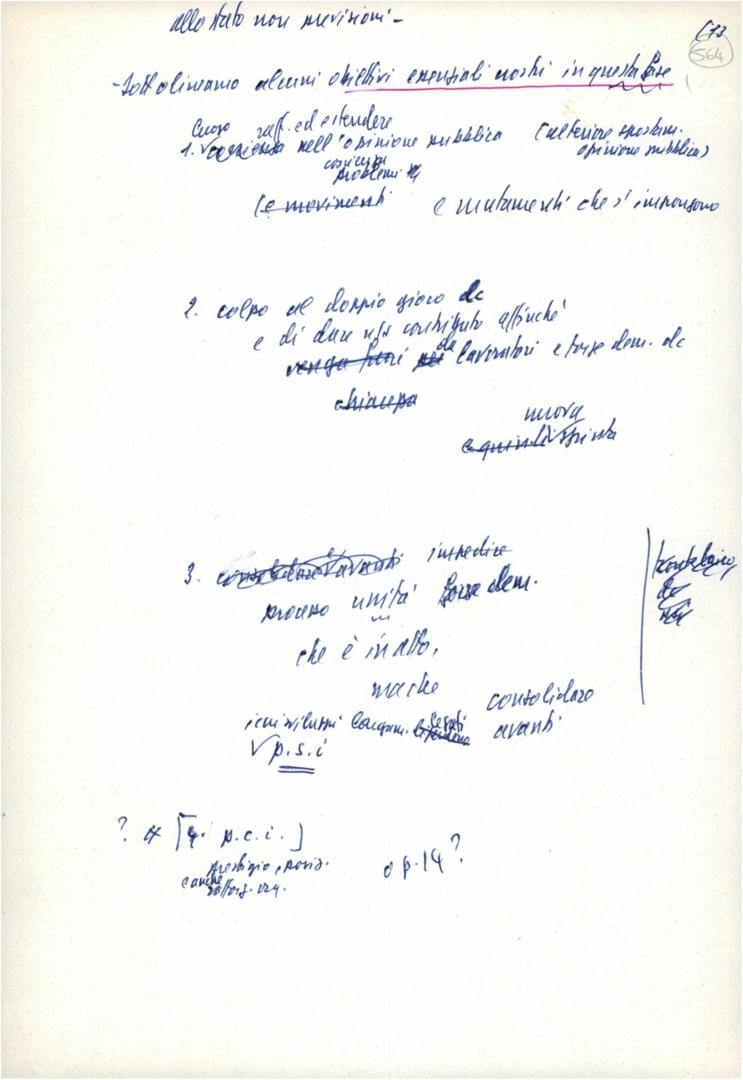 allo stato non previsioni -
173
564
- Sottolineamo alcuni obiettivi essenziali nostri in questa fase
raff. ed estendere
1. coscienza nell'opinione pubblica (ulteriore spostam.
coscienza opinione pubblica)
problemi
(e movimenti e mutamenti che s'impongono
2. colpo al doppio gioco dc
e di dare ns contributo affinché
venga fuori da lavoratori e forze dem. dc
chiarezza
nuova
e quindi spinta
3. impedire
processo unità forze dem.
che è in atto,
ma che
consolidare
i cui sviluppi avanti
p.s.i
? 4. p.c.i.]
prestigio, posiz.
e anche
raff. org.
o p. 14?